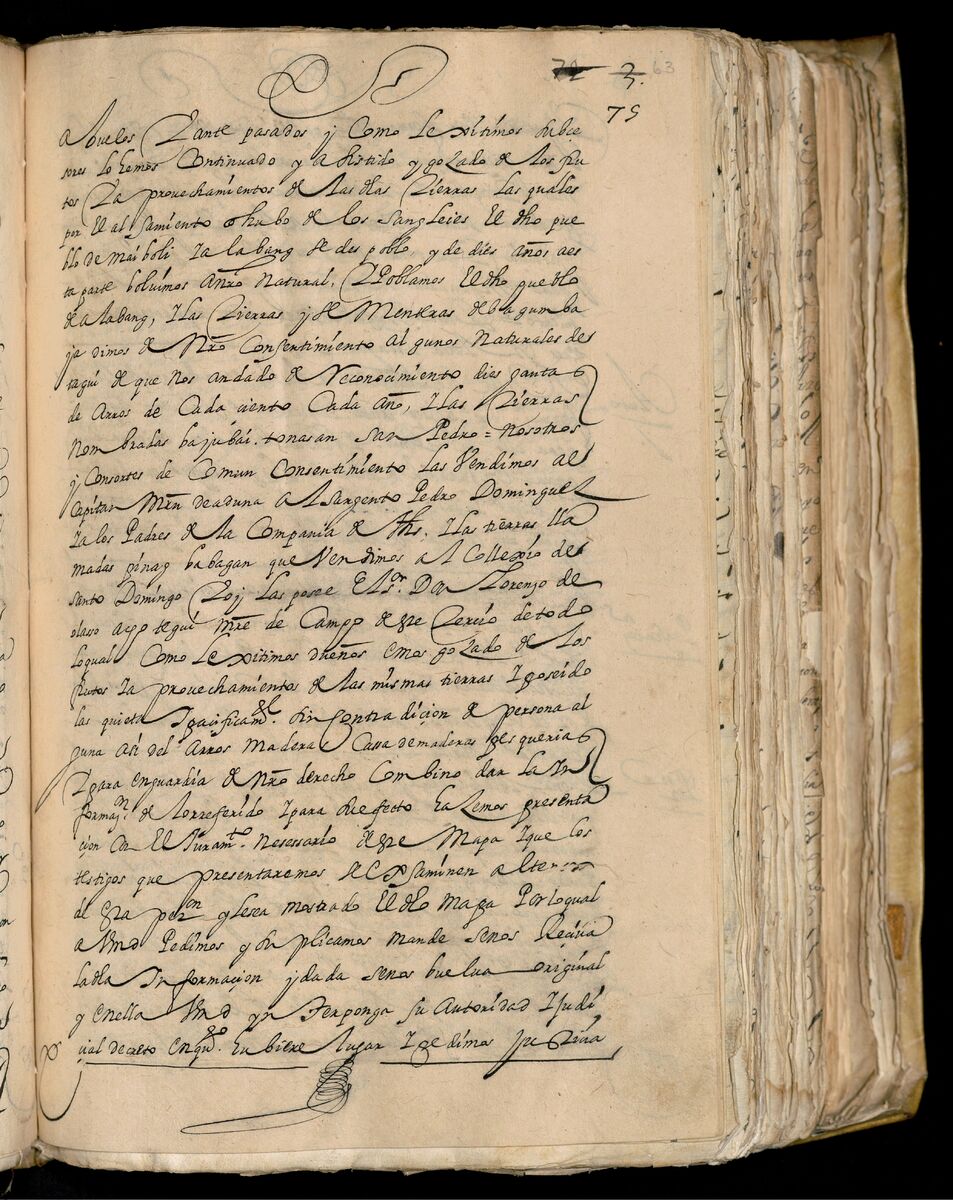 72 3. 63
75
abuelos Y ante pasados y Como lexitimos subce
sores lo hemos Continuado y asistido y gozado de los fru
tos Y a provechamientos de las dhas tierras las quales
por El alsamiento q hubo de los sangleies El dho pue
blo de maiboli Ialabang se des poblo, y de dies años aes
ta parte bolvimos a nro Natural, Y Poblamos El dho pueblo
de alabang, Ylas tierras y de Mentras de bagumba
ya dimos de Nro Consentimiento algunos Naturales de
tagui de que nos an dado de Reconocimiento dies gantas
de Arros de Cada ciento Cada Año, Ylas tierras
Nombradas bajubai. tonasan San Pedro = Nosotros
y Consortes de Comun Consentimiento las Vendimos al
Capitan Mrn deaduna al sargento Pedro Dominguez
Ya los Padres de la Compania de Jhs, Ylas tierras lla
madas pinag babagan que Vendimos al Collexio de
santo Domingo Y oy las posee El Sr. Don Lorenzo de
olaso achotegui Mre de Campo deste tercio de todo
loqual Como lexitimos dueños emos gozado de los
frutos Ya provechamientos de las mismas tierras Y poseido
las quieta Y pacificamte. sin Contradicion de persona al
guna asi del Arros Madera Casa de maderas pesqueria
Y para en guardia de Nro derecho Combino dar la In
formaçon de lo rreferido Y para su efecto hazemos presenta
cion Con El Juramto. Nesessario deste Mapa Y que los
testigos que presentaremos se Exsaminen al tenor
de esta peton y lesea mostrado El dho Mapa Por lo qual
a Vmd Pedimos y suplicamos mande senos Reçiva
la dha Informaçion y dada senos buelva original
y En ella Vmd yn terponga su Autoridad Y judi
cial decreto en qto. hubiere lugar Y pedimos justicia